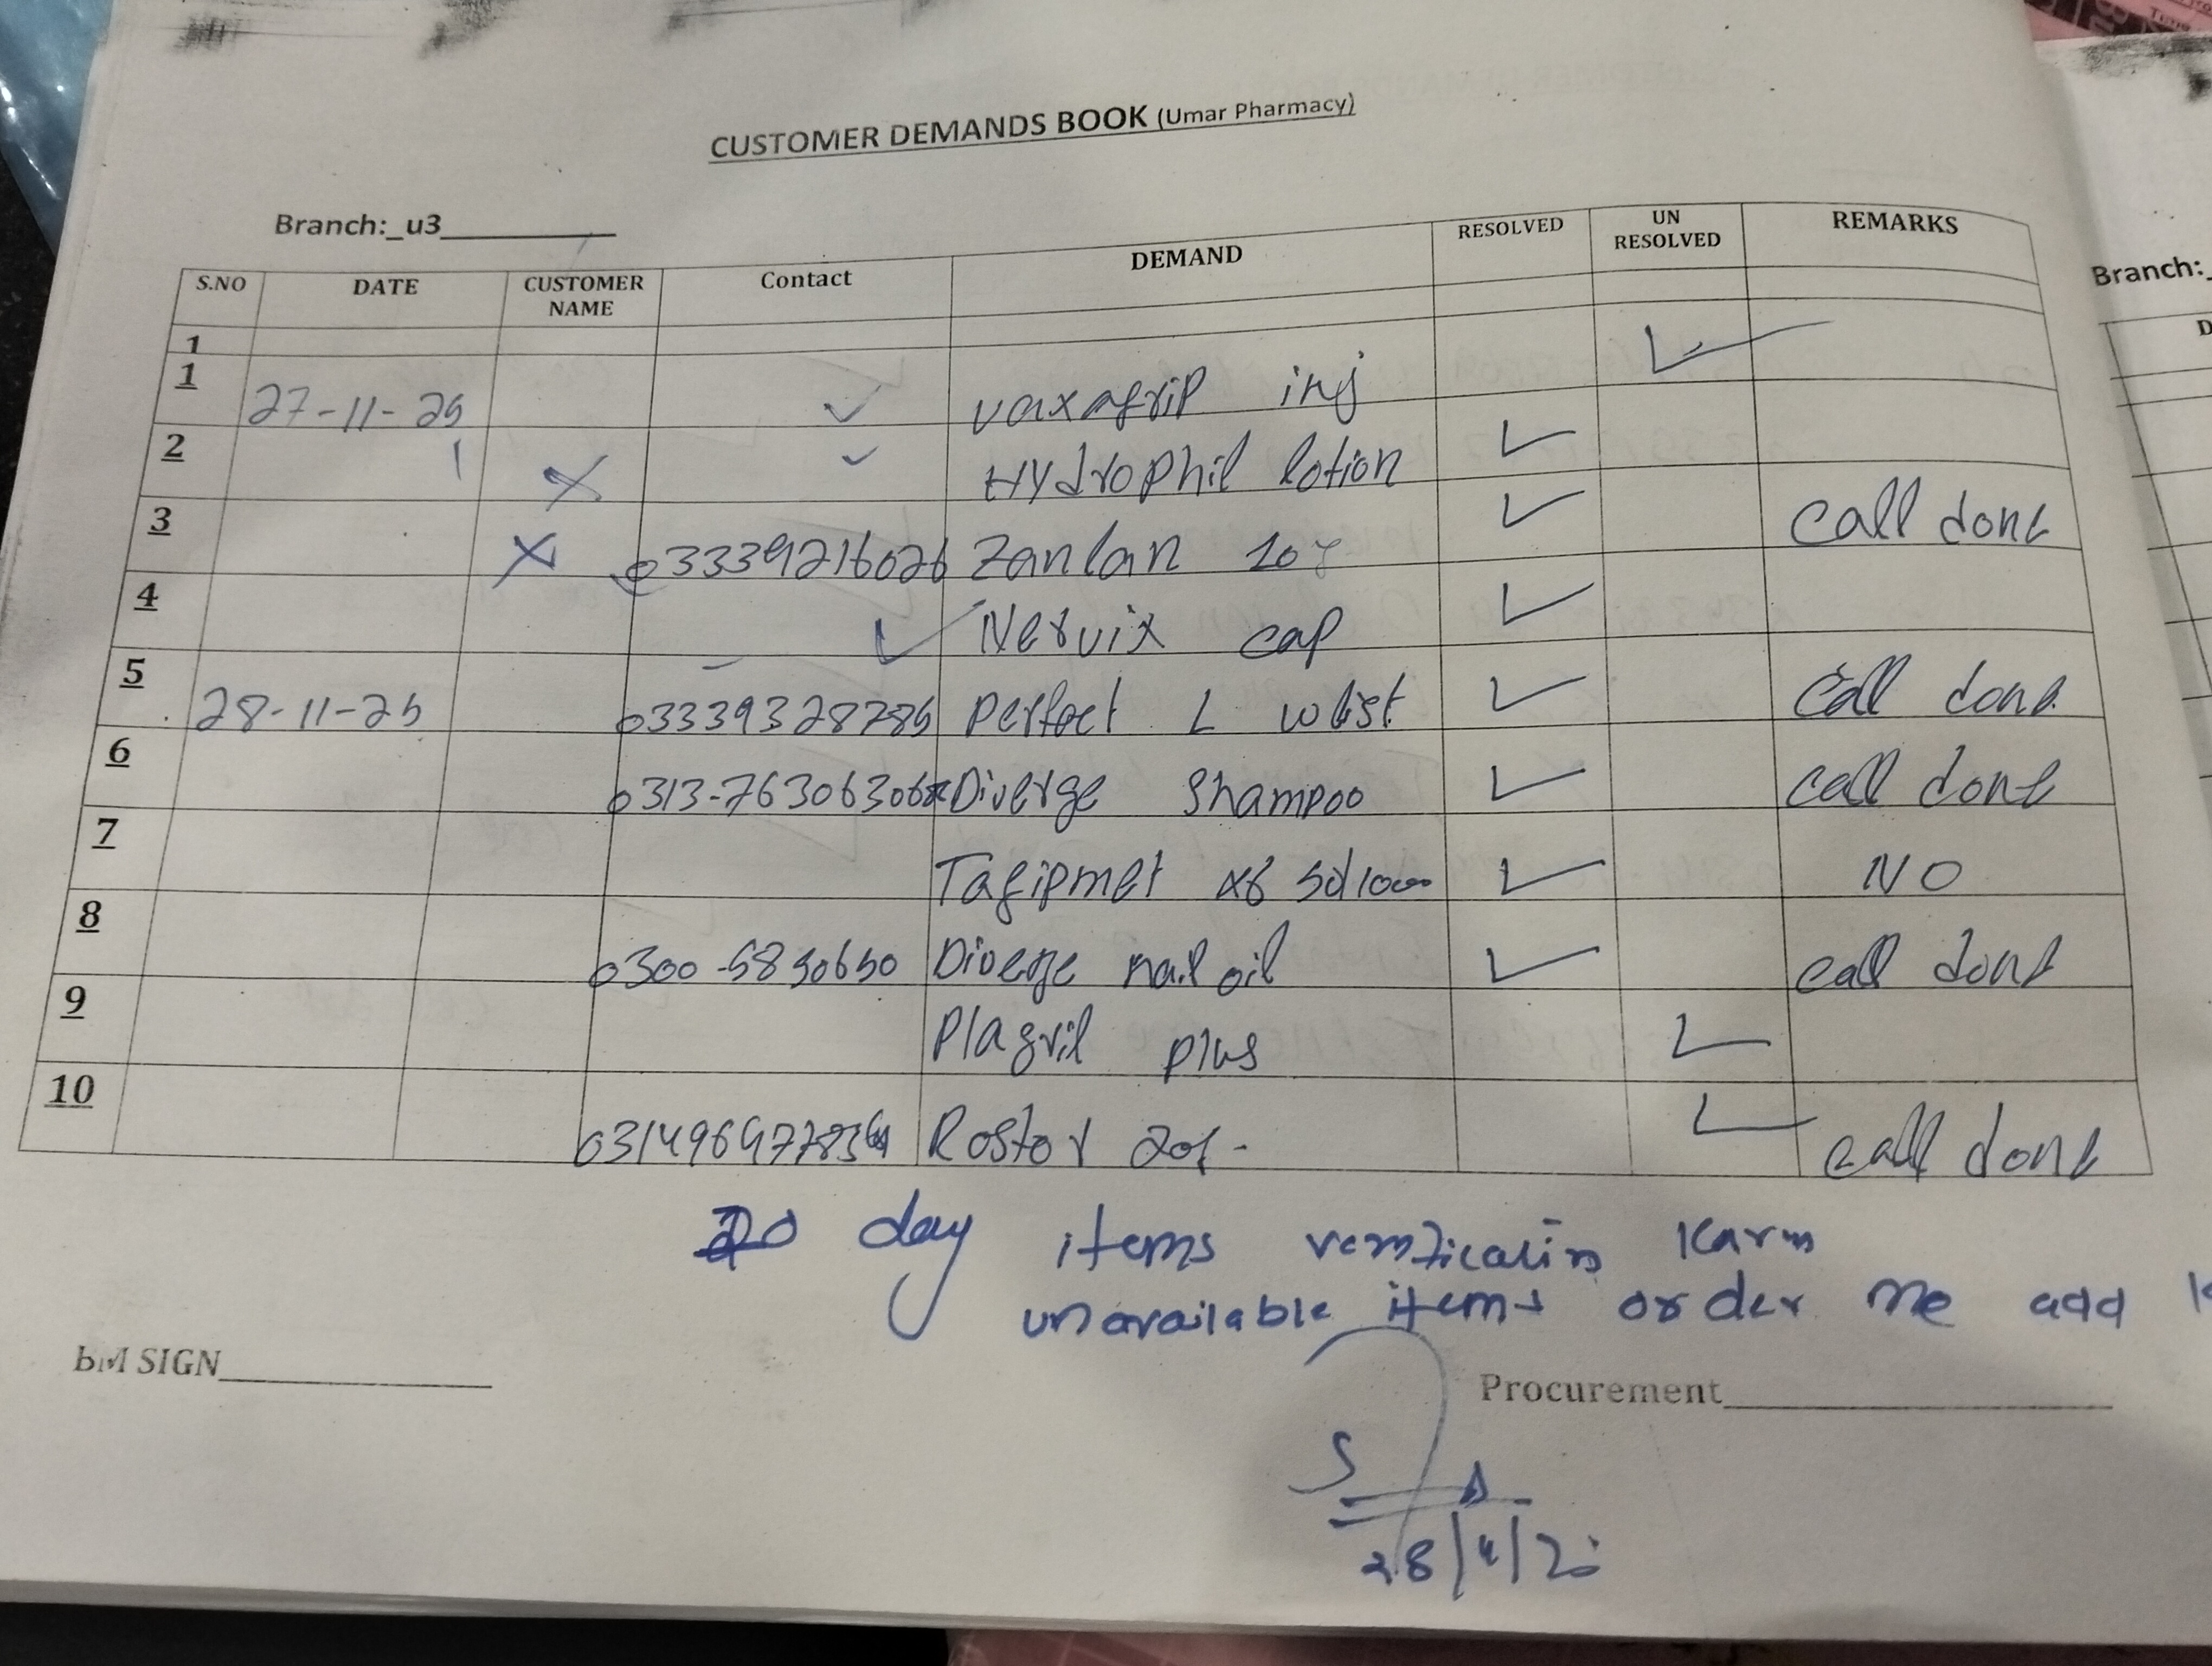 CUSTOMER DEMANDS BOOK (Umar Pharmacy)
Branch:_u3
S.NO DATE CUSTOMER NAME Contact DEMAND RESOLVED UN RESOLVED REMARKS
1
1 27-11-25 vaxagrip inj
2 Hydrophil lotion
3 03339216026 Zanlan 10 call done
4 Nervix cap
5 28-11-25 03339328785 Perfect L call done
6 Diverge Shampoo call done
7 NO
8 0300-5850650 Diverge nail oil call done
9 Plagril plus
10 Rostor call done
day items verification karin
unavailable items order me add
BM SIGN
Procurement
28/11/25
Branch: